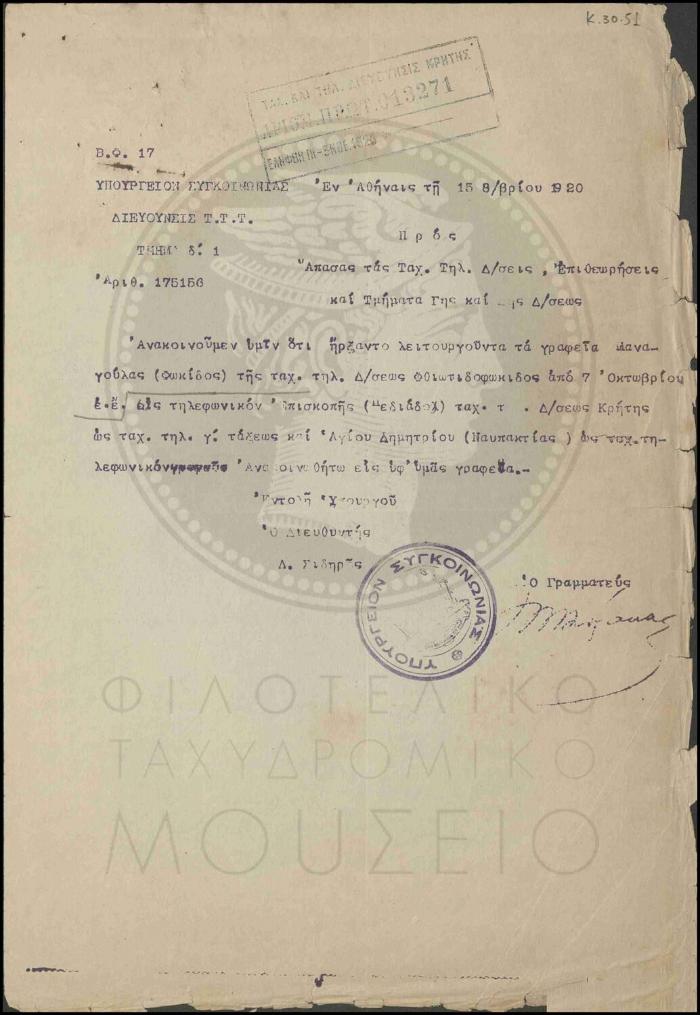 Κ.30.51
ΤΑΧ. ΚΑΙ ΤΗΛ. ΔΙΕΥΘΥΝΣΙΣ ΚΡΗΤΗΣ
ΑΡΙΘ. ΠΡΩΤ. 013271
Β.Φ. 17
ΥΠΟΥΡΓΕΙΟΝ ΣΥΓΚΟΙΝΩΝΙΑΣ Ἐν Ἀθήναις τῇ 15 8/βρίου 1920
ΔΙΕΥΘΥΝΣΙΣ Τ.Τ.Τ.
Πρός
ΤΜΗΜΑ δ. 1
Ἀπάσας τάς Ταχ. Τηλ. Δ/σεις , Ἐπιθεωρήσεις
Ἀριθ. 175156
καί Τμήματα Γης καί Δ/σεως
Ἀνακοινοῦμεν ὑμῖν ὅτι ἤρξαντο λειτουργοῦντα τά γραφεῖα Μανα-
γούλας (Φωκίδος) τῆς ταχ. τηλ. Δ/σεως Φθιωτιδοφωκίδος ἀπό 7 Ὀκτωβρίου
ἐ.ἔ. εἰς τηλεφωνικόν Ἐπισκοπῆς (Πεδιάδος) ταχ. τ . Δ/σεως Κρήτης
ὡς ταχ. τηλ. γ. τάξεως καί Ἁγίου Δημητρίου (Ναυπακτίας ) ὡς ταχ.τη-
λεφωνικόν Ἀνακοινωθήτω εἰς ὑφ'ὑμᾶς γραφεῖα.-
Ἐντολῇ Ὑπουργοῦ
Ὁ Διευθυντής
Δ. Σιδηρῆς
Ὁ Γραμματεύς
ΥΠΟΥΡΓΕΙΟΝ ΣΥΓΚΟΙΝΩΝΙΑΣ
ΦΙΛΟΤΕΛΙΚΟ
ΤΑΧΥΔΡΟΜΙΚΟ
ΜΟΥΣΕΙΟ